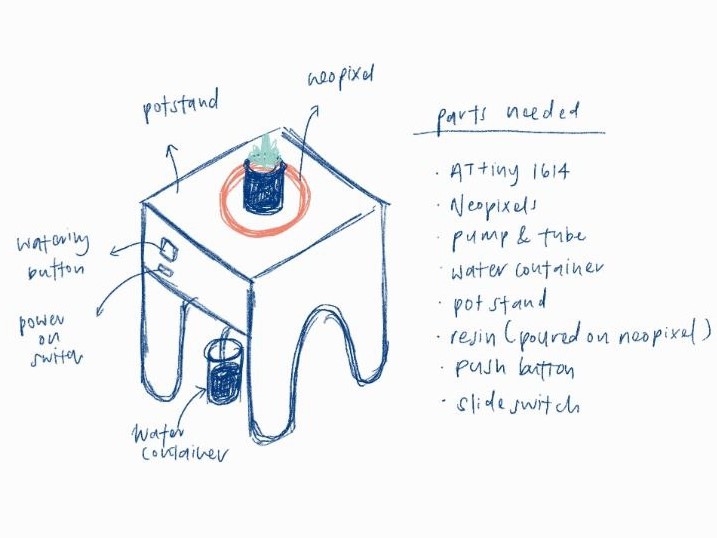 neopixel
potstand
watering
button
power
on
switch
water
container
parts needed
· ATtiny 1614
· Neopixels
· pump & tube
· water container
· pot stand
· resin (poured on neopixel)
· push button
· slide switch